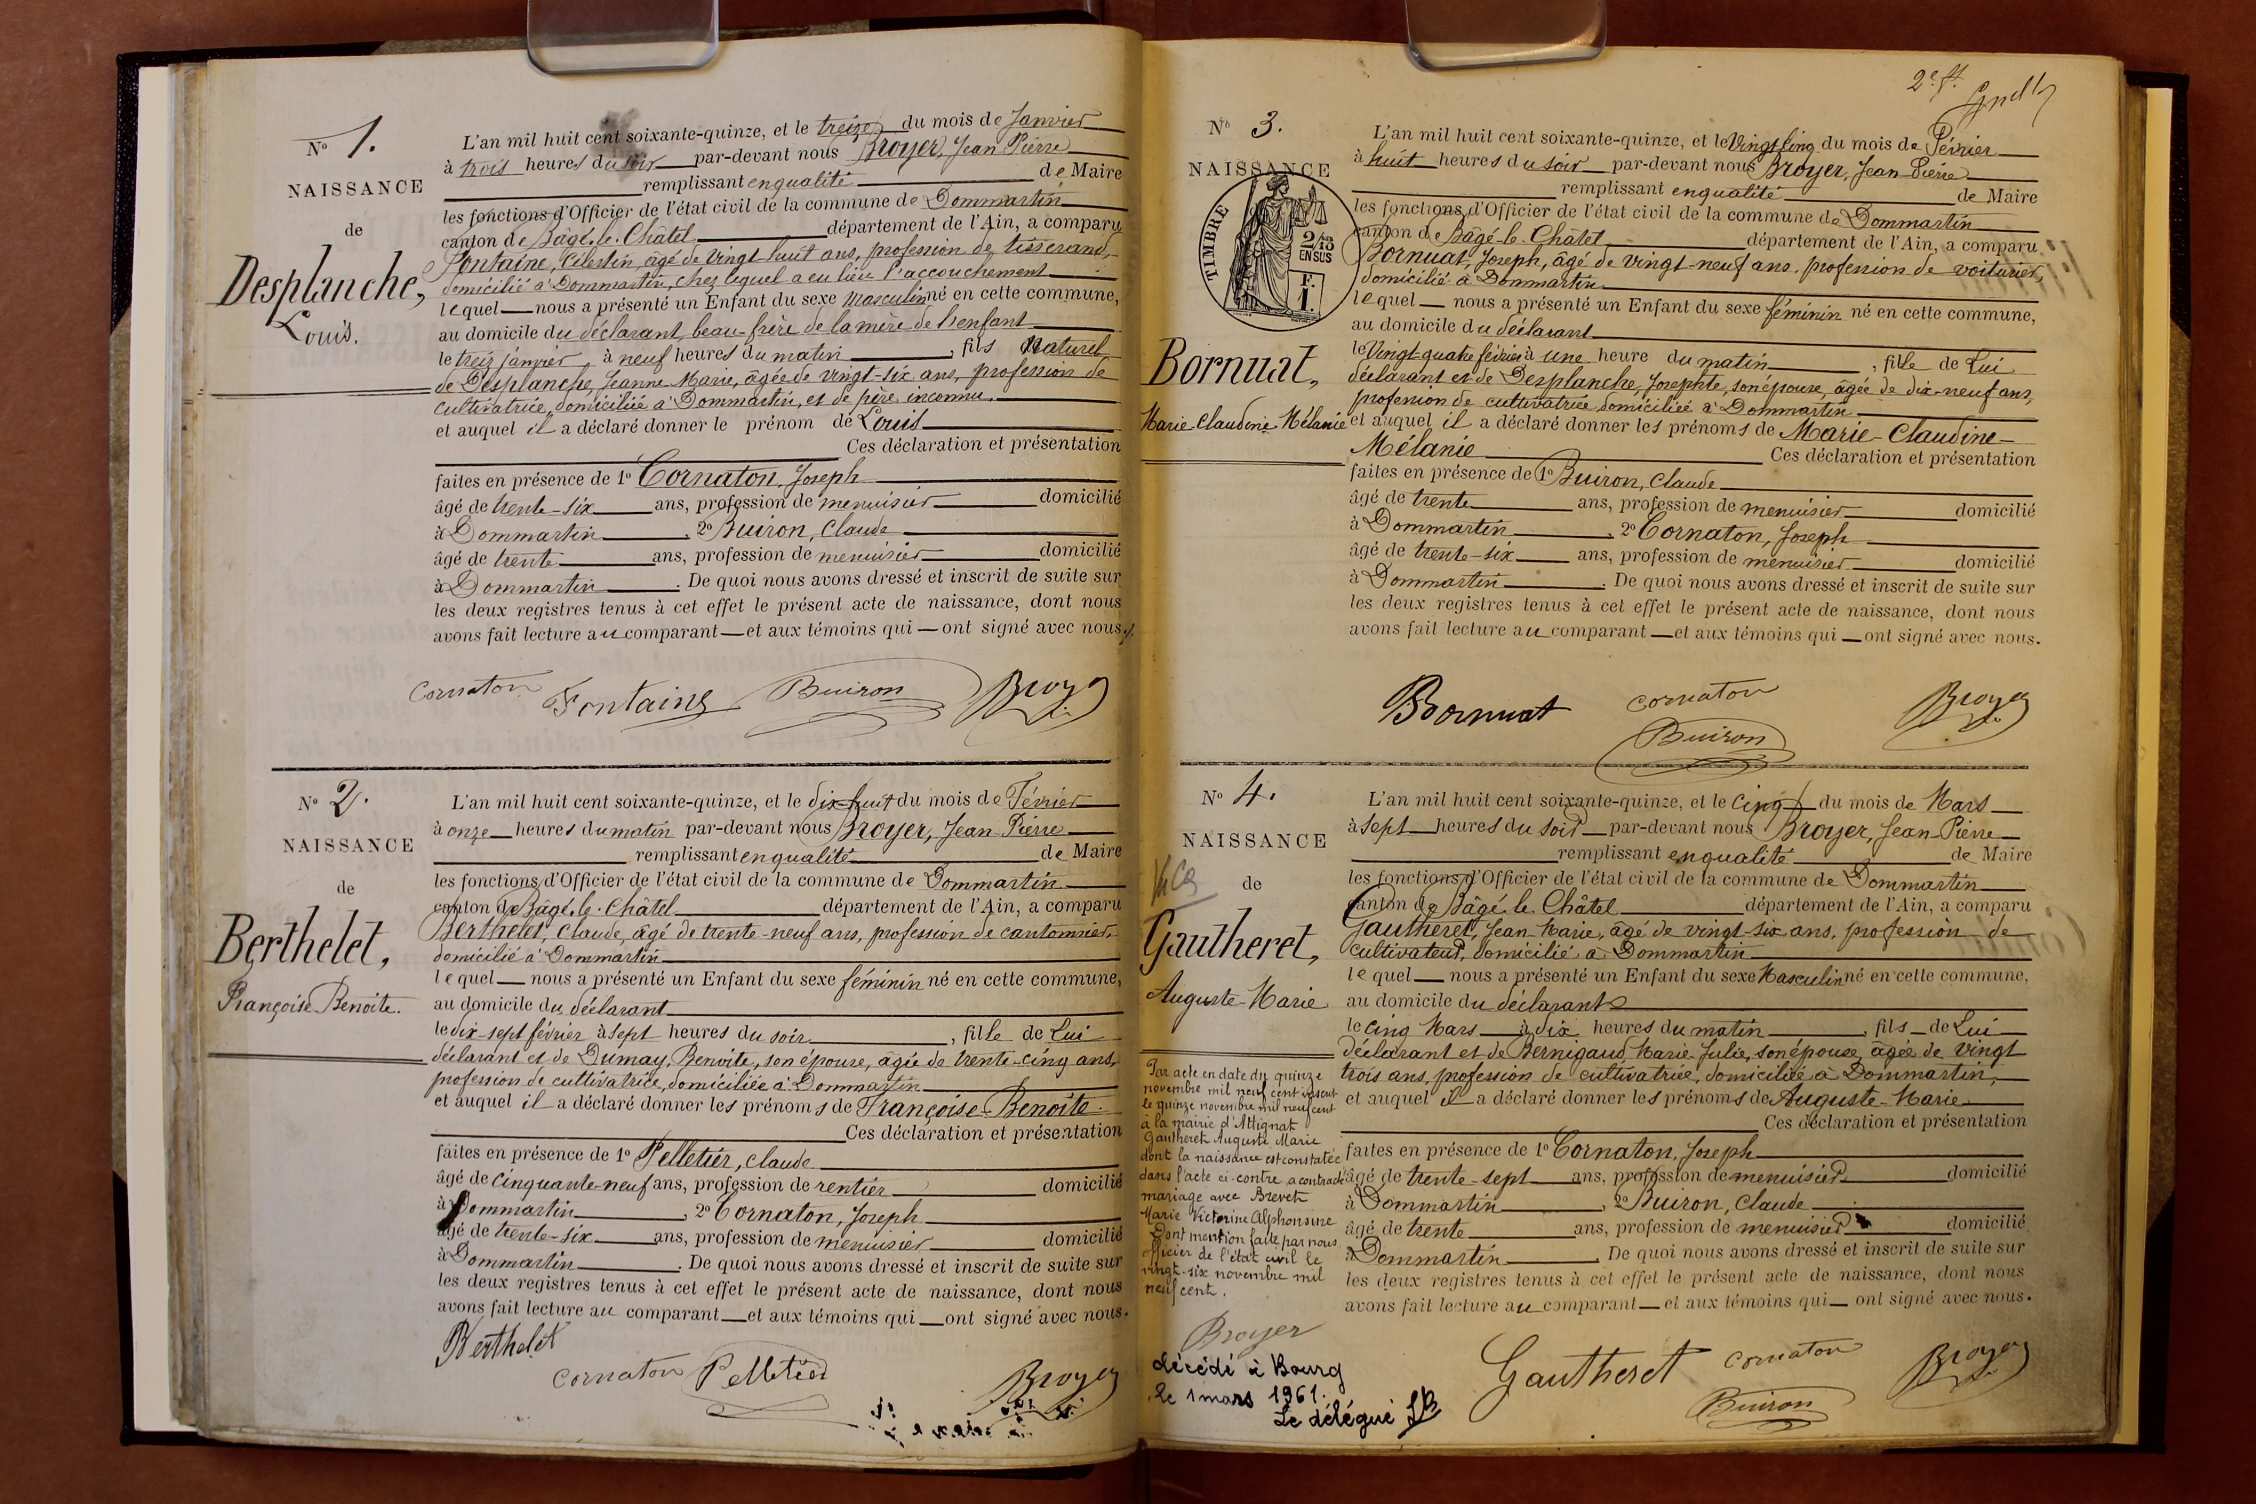 N° 1.
NAISSANCE
de
Desplanche,
Louis.
L'an mil huit cent soixante-quinze, et le treize du mois de Janvier
à trois heures du soir par-devant nous Broyer, Jean Pierre
remplissant en qualité de Maire
les fonctions d'Officier de l'état civil de la commune de Dommartin
canton de Bâgé-le-Châtel département de l'Ain, a comparu
Fontaine, Célestin, âgé de vingt-huit ans, profession de tisserand,
domicilié à Dommartin, chez lequel a eu lieu l'accouchement
lequel nous a présenté un Enfant du sexe masculin né en cette commune,
au domicile du déclarant, beau-frère de la mère de l'enfant
le treiz janvier, à neuf heures du matin, fils naturel
de Desplanche, Jeanne Marie, âgée de vingt-six ans, profession de
cultivatrice, domiciliée à Dommartin, et de père inconnu.
et auquel il a déclaré donner le prénom de Louis
Ces déclaration et présentation
faites en présence de 1° Cornaton, Joseph
âgé de trente-six ans, profession de menuisier domicilié
à Dommartin, 2° Buiron, Claude
âgé de trente ans, profession de menuisier domicilié
à Dommartin. De quoi nous avons dressé et inscrit de suite sur
les deux registres tenus à cet effet le présent acte de naissance, dont nous
avons fait lecture au comparant et aux témoins qui ont signé avec nous.
Cornaton Fontaine Buiron Broyer
N° 2.
NAISSANCE
de
Berthelet,
Françoise-Benoite.
L'an mil huit cent soixante-quinze, et le dix-huit du mois de Février
à onze heures du matin par-devant nous Broyer, Jean-Pierre
remplissant en qualité de Maire
les fonctions d'Officier de l'état civil de la commune de Dommartin
canton de Bâgé-le-Châtel département de l'Ain, a comparu
Berthelet, Claude, âgé de trente-neuf ans, profession de cantonnier,
domicilié à Dommartin
lequel nous a présenté un Enfant du sexe féminin né en cette commune,
au domicile du déclarant
le dix-sept février à sept heures du soir, fille de Lui
déclarant et de Dumay, Benoite, son épouse, âgée de trente-cinq ans,
profession de cultivatrice, domiciliée à Dommartin
et auquel il a déclaré donner les prénoms de Françoise-Benoite.
Ces déclaration et présentation
faites en présence de 1° Pelletier, Claude
âgé de cinquante-neuf ans, profession de rentier domicilié
à Dommartin, 2° Cornaton, Joseph
âgé de trente-six ans, profession de menuisier domicilié
à Dommartin. De quoi nous avons dressé et inscrit de suite sur
les deux registres tenus à cet effet le présent acte de naissance, dont nous
avons fait lecture au comparant et aux témoins qui ont signé avec nous.
Berthelet
Cornaton Pelletier Broyer
2e ft.
N° 3.
NAISSANCE
TIMBRE
2/10
EN SUS
F.
1.
Bornuat,
Marie Claudine Mélanie
L'an mil huit cent soixante-quinze, et le Vingt-cinq du mois de Février
à huit heures du soir par-devant nous Broyer, Jean-Pierre
remplissant en qualité de Maire
les fonctions d'Officier de l'état civil de la commune de Dommartin
canton de Bâgé-le-Châtel département de l'Ain, a comparu
Bornuat, Joseph, âgé de vingt-neuf ans, profession de voiturier,
domicilié à Dommartin
lequel nous a présenté un Enfant du sexe féminin né en cette commune,
au domicile du déclarant
le Vingt-quatre février à une heure du matin, fille de Lui
déclarant et de Desplanche, Josephte, son épouse, âgée de dix-neuf ans,
profession de cultivatrice, domiciliée à Dommartin
et auquel il a déclaré donner les prénoms de Marie-Claudine-
Mélanie Ces déclaration et présentation
faites en présence de 1° Buiron, Claude
âgé de trente ans, profession de menuisier domicilié
à Dommartin, 2° Cornaton, Joseph
âgé de trente-six ans, profession de menuisier domicilié
à Dommartin. De quoi nous avons dressé et inscrit de suite sur
les deux registres tenus à cet effet le présent acte de naissance, dont nous
avons fait lecture au comparant et aux témoins qui ont signé avec nous.
Bornuat Cornaton Broyer
Buiron
N° 4.
NAISSANCE
de
Gautheret,
Auguste-Marie
Par acte en date du quinze
novembre mil neuf cent
le quinze novembre mil neuf cent
à la mairie d'Attignat
Gautheret Auguste Marie
dont la naissance est constatée
dans l'acte ci-contre a contracté
mariage avec Brevet
Marie Victorine Alphonsine
Dont mention faite par nous
officier de l'état civil le
vingt-six novembre mil
neuf cent.
Broyer
décédé à Bourg
le 1 mars 1961.
Le délégué
L'an mil huit cent soixante-quinze, et le Cinq du mois de Mars
à sept heures du soir par-devant nous Broyer, Jean-Pierre
remplissant en qualité de Maire
les fonctions d'Officier de l'état civil de la commune de Dommartin
canton de Bâgé-le-Châtel département de l'Ain, a comparu
Gautheret, Jean-Marie, âgé de vingt-six ans, profession de
cultivateur, domicilié à Dommartin
lequel nous a présenté un Enfant du sexe Masculin né en cette commune,
au domicile du déclarant
le cinq Mars à dix heures du matin, fils de Lui
déclarant et de Bernigaud, Marie-Julie, son épouse, âgée de vingt
trois ans, profession de cultivatrice, domiciliée à Dommartin,
et auquel il a déclaré donner les prénoms de Auguste-Marie
Ces déclaration et présentation
faites en présence de 1° Cornaton, Joseph
âgé de trente-sept ans, profession de menuisier domicilié
à Dommartin, 2° Buiron, Claude
âgé de trente ans, profession de menuisier domicilié
à Dommartin. De quoi nous avons dressé et inscrit de suite sur
les deux registres tenus à cet effet le présent acte de naissance, dont nous
avons fait lecture au comparant et aux témoins qui ont signé avec nous.
Gautheret Cornaton Broyer
Buiron